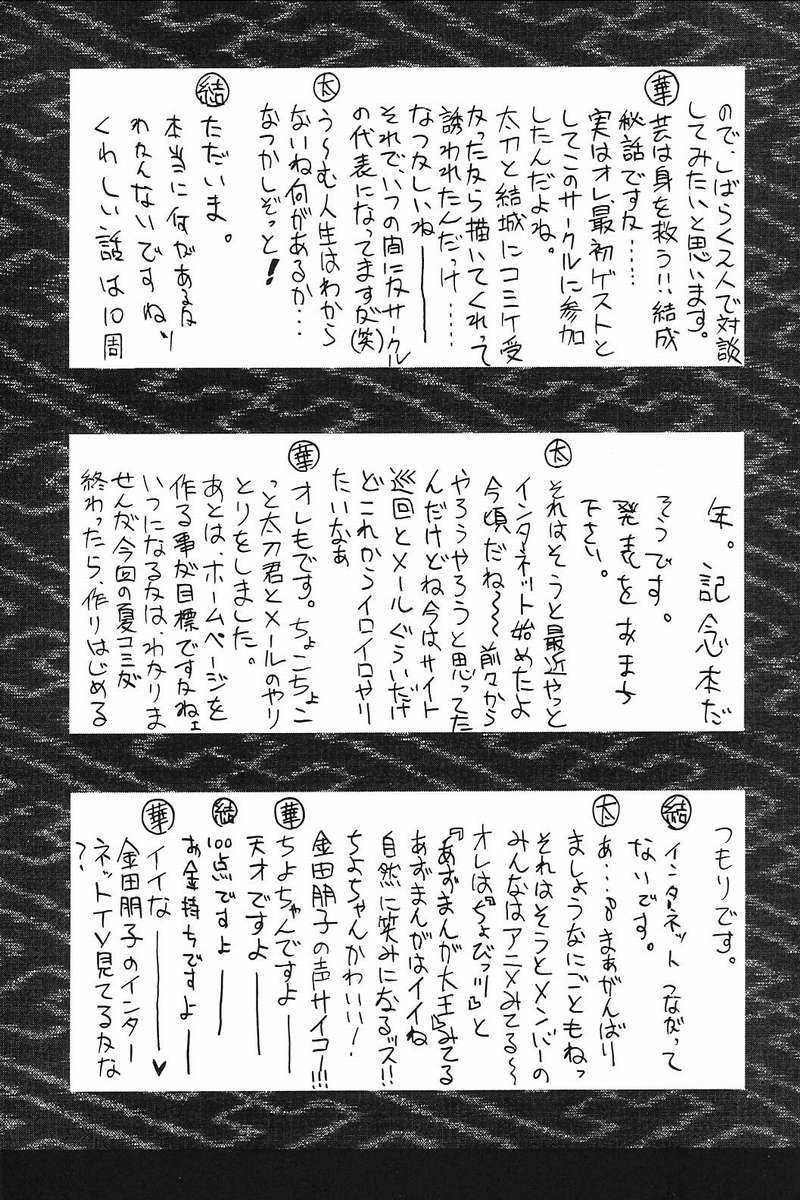 ので、しばらく3人で対談
してみたいと思います。
華 芸は身を救う!!結成
秘話ですな……
実はオレ、最初ゲストと
してこのサークルに参加
したんだよね。
太刀と結城にコミケ受
かったなら描いてくれって
誘われたんだっけ……
なつかしいね――
それで、いつの間にかサークル
の代表になってますが(笑)
太 う〜む人生はわから
ないね何があるか…
なつかしぞっと!
結 ただいま。
本当に何があるか
わかんないですね。
くわしい話は10周
年。記念本だ
そうです。
発表をおまち
下さい。
太 それはそうと最近やっと
インタネット始めたよ
今頃だね〜〜前々から
やろうやろうと思ってた
んだけどね今はサイト
巡回とメールぐらいだけ
どこれからイロイロやり
たいなぁ
華 オレもです。ちょこちょこ
っと太刀君とメールのやり
とりをしました。
あとは、ホームページを
作る事が目標ですかねェ
いつになるかは、わかりま
せんが今回の夏コミが
終わったら、作りはじめる
つもりです。
結 インターネットつながって
ないです。
太 あ…まぁがんばり
ましょうなにごともねっ
それはそうとメンバーの
みんなはアニメみてる〜
オレは『ちょびっツ』と
『あずまんが大王』みてる
あずまんがはイイね
自然に笑みになるッス!!
ちよちゃんかわいい!
金田朋子の声サイコー!!!
華 ちよちゃんですよ――
天才ですよ――
結 100点ですよ――
お金持ちですよ――
華 イイな――♥
金田朋子のインター
ネットTV見てるかな
?